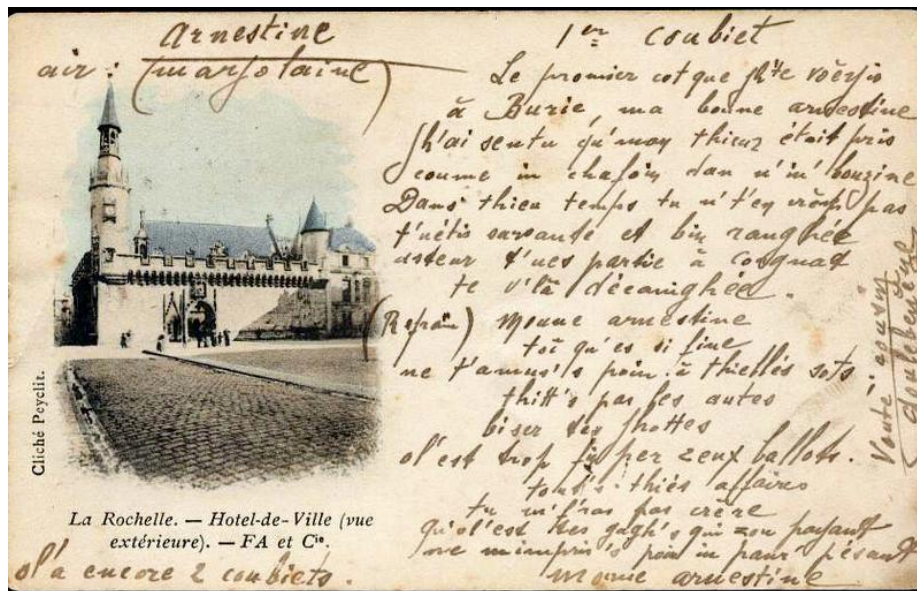 Arnestine
air : (marjolaine)
1er coubiet
Le promier cot que jh'te
à Burie, ma boune arnestine
Jh'ai sentu qu'mon thieur était pris
coume in chafoin dan n'in' bouzine
Dans thieu temps tu n't'en pas
t'étis sarvante et bin ranghée
asteur t'nes partie à Cognat
te v'là décanighée.
(Refrain) Moune arnestine
toi qu'es si fine
ne t'amus's poin à thiellés sots
thitt's pas les autes
biser tes jhottes
ol'est trop fin per zeux ballots.
tout's thiés affaires
tu m'f'ras pas crère
qu'ol'est tes gagh's qui zou payant
me poin in paur' pésant
Moune arnestine
Cliché Peyclit.
La Rochelle. — Hotel-de-Ville (vue
extérieure). — FA et Cie.
ol'a encore 2 coubiets.